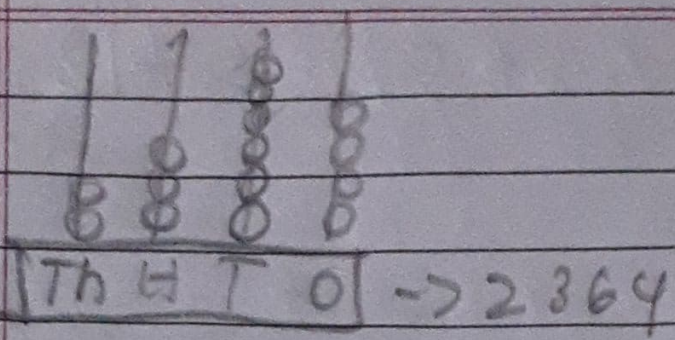 Th H T O -> 2364